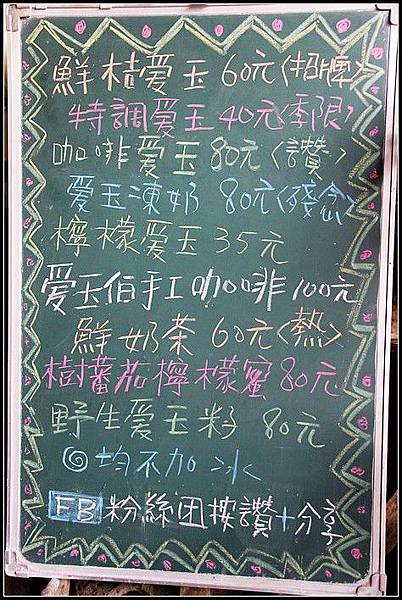 鮮桔爱玉 60元〈招牌〉
特調爱玉 40元〈季限〉
咖啡爱玉 80元〈讚〉
爱玉凍奶 80元〈殘念〉
檸檬爱玉 35元
爱玉伯手工咖啡 100元
鮮奶茶 60元〈熱〉
樹蕃茄檸檬蜜 80元
野生爱玉籽 80元
◎均不加冰
FB 粉絲团按讚+分享